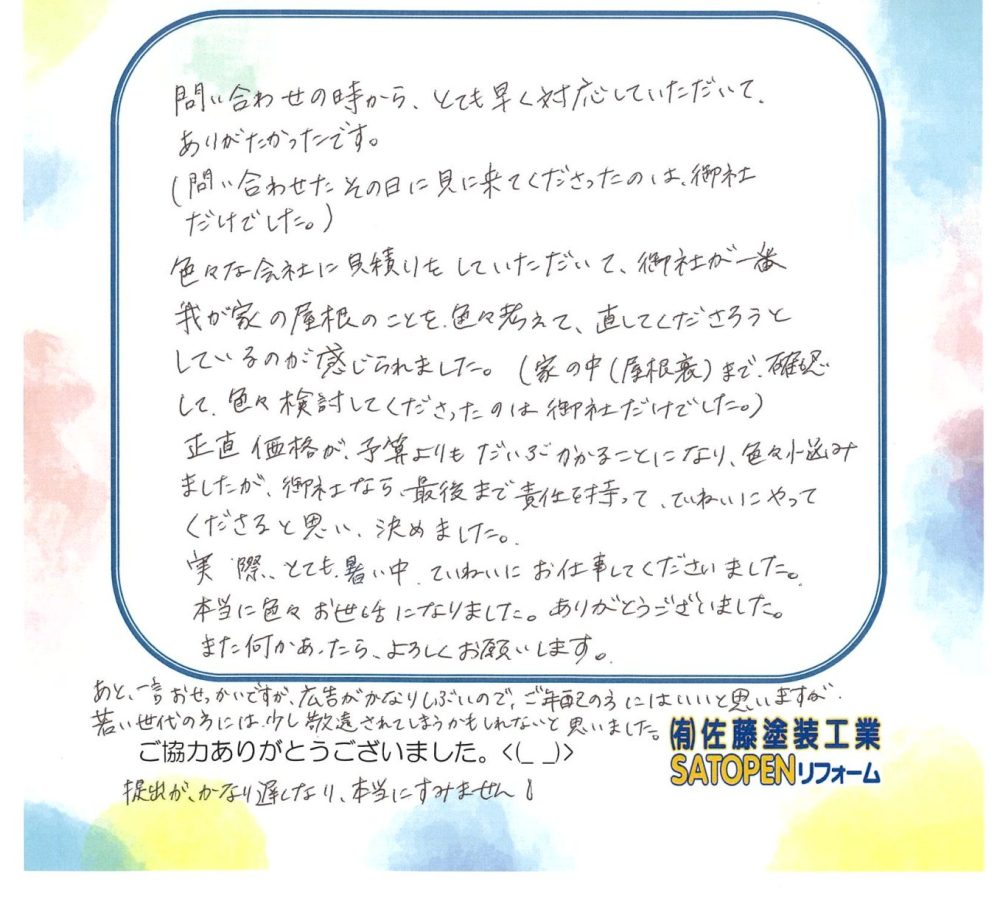 問い合わせの時から、とても早く対応していただいて、
ありがたかったです。
(問い合わせたその日に見に来てくださったのは、御社
だけでした。)
色々な会社に見積りをしていただいて、御社が一番
我が家の屋根のことを、色々考えて、直してくださろうと
しているのが感じられました。(家の中(屋根裏)まで、確認
して、色々検討してくださったのは御社だけでした。)
正直価格が、予算よりもだいぶかかることになり、色々悩み
ましたが、御社なら、最後まで責任を持って、ていねいにやって
くださると思い、決めました。
実際、とても暑い中、ていねいにお仕事してくださいました。
本当に色々お世話になりました。ありがとうございました。
また何かあったら、よろしくお願いします。
あと、一言おせっかいですが、広告がかなりしぶいので、ご年配の方にはいいと思いますが、
若い世代の方には、少し敬遠されてしまうかもしれないと思いました。
ご協力ありがとうございました。<(_ _)>
(有)佐藤塗装工業
SATOPENリフォーム
提出が、かなり遅くなり、本当にすみません!